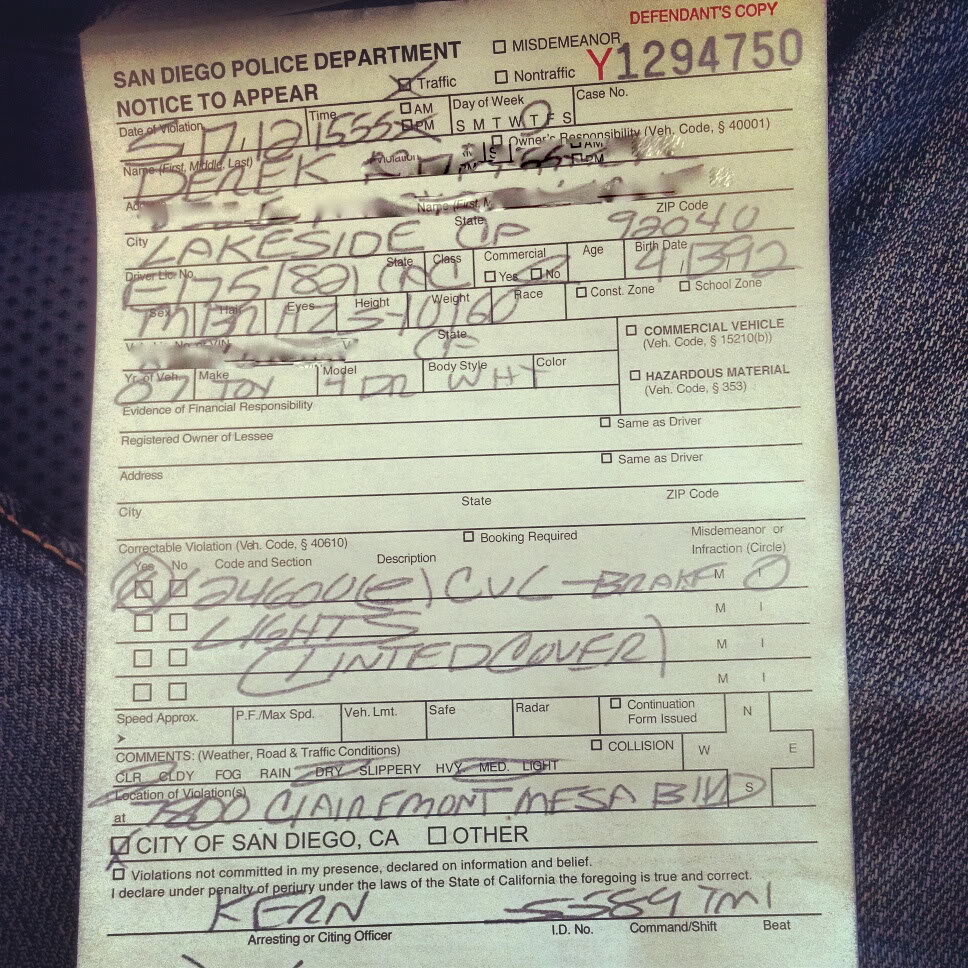 DEFENDANT'S COPY
SAN DIEGO POLICE DEPARTMENT MISDEMEANOR Y1294750
NOTICE TO APPEAR Traffic Nontraffic
Date of Violation Time AM PM Day of Week S M T W T F S Case No.
5 7 12 1555
Owner's Responsibility (Veh. Code, § 40001)
Name (First, Middle, Last)
DEREK
State ZIP Code
City
LAKESIDE CA 92040
Driver Lic. No. State Class Commercial Yes No Age Birth Date
CA C 4 13 92
Sex Hair Eyes Height Weight Race Const. Zone School Zone
M 5-10 160
State
CA
COMMERCIAL VEHICLE
(Veh. Code, § 15210(b))
Yr. of Veh. Make Model Body Style Color
07 TOY 4DR WHT
HAZARDOUS MATERIAL
(Veh. Code, § 353)
Evidence of Financial Responsibility
Registered Owner of Lessee Same as Driver
Address Same as Driver
City State ZIP Code
Correctable Violation (Veh. Code, § 40610) Booking Required Misdemeanor or
Infraction (Circle)
Yes No Code and Section Description
24600(e) CVC - BRAKE M I
LIGHTS M I
(TINTED COVER) M I
M I
Speed Approx. P.F./Max Spd. Veh. Lmt. Safe Radar Continuation
Form Issued
N
COMMENTS: (Weather, Road & Traffic Conditions) COLLISION W E
CLR CLDY FOG RAIN DRY SLIPPERY HVY MED. LIGHT
Location of Violation(s) S
at 7800 CLAIREMONT MESA BLVD
CITY OF SAN DIEGO, CA OTHER
Violations not committed in my presence, declared on information and belief.
I declare under penalty of perjury under the laws of the State of California the foregoing is true and correct.
KERN 5589 TM1
Arresting or Citing Officer I.D. No. Command/Shift Beat